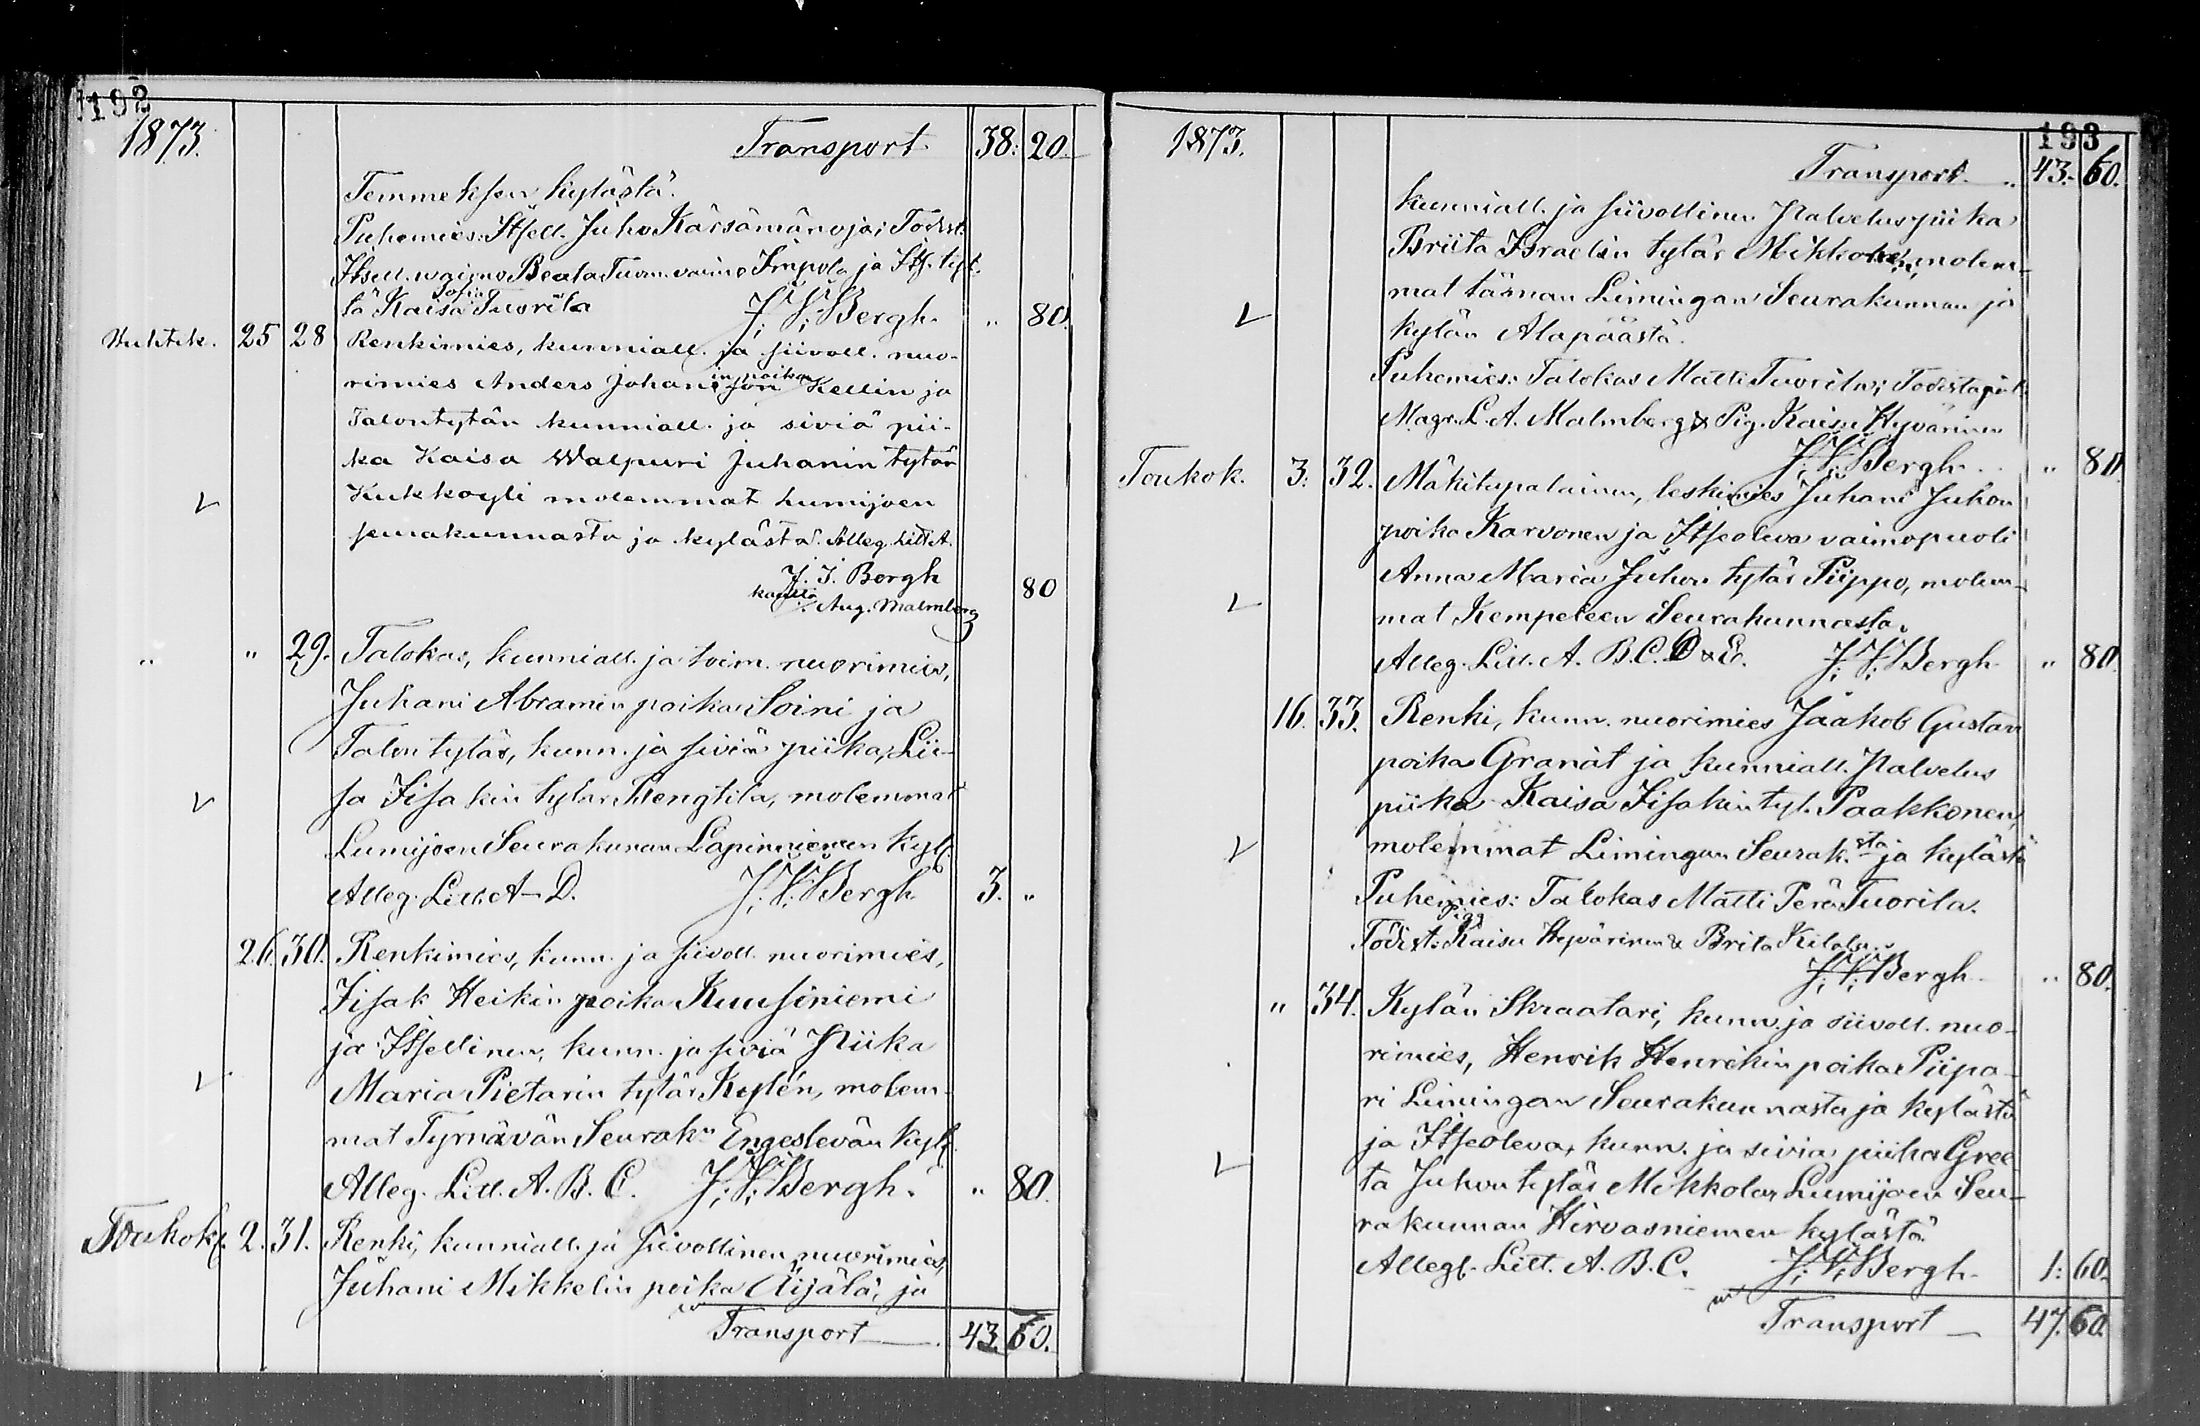 192
1873. Transport 38: 20.
Temmeksen kylästä.
Puhemies: Itsell. Juho Kärsämänoja; Todist:
Itsell. waimo Beata Tuom. vaimo Impola ja Its. tyt.
Sofia
tä Kaisa Tuorila J. V. Bergh. " 80.
Huhtik. 25 28 Renkimies, kunniall. ja siivoll. nuo-
in poika
rimies Anders Johansson Kellin ja
Talontytär kunniall. ja siviä pii-
ka Kaisa Walpuri Juhanin tytär
Kukkoyli molemmat lumijoen
seurakunnasta ja kylästä. Alleg. Litt A.
J. V. Bergh
kautta 80
Aug. Malmberg
" " 29. Talokas, kunniall. ja toim. nuorimies,
Juhani Abramin poika Soini ja
Talon tytär, kunn. ja siviä piika, Lii-
sa Iisakin tytär Hengtila, molemmat
Lumijoen Seurakunnan Lapinniemen kyl.
Alleg. Litt. A-D. J. V. Bergh 3. "
26. 30. Renkimies, kunn. ja siivoll. nuorimies,
Iisak Heikin poika Kuusiniemi
ja Itsellinen, kunn. ja siviä Piika
Maria Pietarin tytär Kylén, molem-
mat Tyrnävän Seurak:n Engeslevän kyl.
Alleg. Litt. A. B. C. J. V. Bergh. " 80.
Toukok. 2. 31. Renki, kunniall. ja Siivollinen nuorimies,
Juhani Mikkelin poika Äijälä, ja
Transport 43. 60.
193
1873. Transport 43. 60.
kunniall. ja siivollinen Palvelus piika
Briita Israelin tytär Mikkonen, molem-
mat tämän Limingan Seurakunnan ja
kylän Alapäästä.
Puhemies: Talokas Matti Tuorila; Todistajat:
Magr. L. A. Malmberg & Pig. Kaisu Hyvärinen
J. V. Bergh. " 80.
Toukok. 3: 32. Mäkitupalainen, leskimies Juhani Juhon
poika Karvonen ja Itseoleva vaimopuoli
Anna Maria Juhon tytär Piippo, molem-
mat Kempeleen Seurakunnasta.
Alleg. Litt. A. B. C. D & E. J. V. Bergh " 80.
16. 33. Renki, kunn. nuorimies Jaakob Gustav
poika Granat ja kunniall. Palvelus
piika Kaisa Iisakin tyt. Paakkonen,
molemmat Limingan Seurak.sta ja kylästä
Puhemies: Talokas Matti Perä Tuorila.
Pigg
Todist: Kaisu Hyvärinen & Brita Kilola.
J. V. Bergh " 80.
" 34. Kylän Skraatari, kunn. ja siivoll. nuo-
rimies, Henrik Henrikin poika Piipa-
ri Limingan Seurakunnasta ja kylästä
ja Itseoleva, kunn. ja siviä piika Gree-
ta Juhon tytär Mikkola, Lumijoen Seu-
rakunnan Hirvasniemen kylästä.
Alleg. Litt. A. B. C. J. V. Bergh 1: 60.
Transport 47. 60.